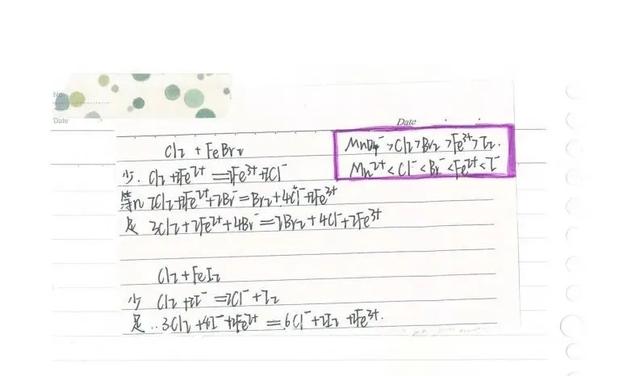 No.
Date
Date
Cl₂ + FeBr₂
MnO₄⁻>Cl₂>Br₂>Fe³⁺>I₂.
Mn²⁺<Cl⁻<Br⁻<Fe²⁺<I⁻
少. Cl₂+2Fe²⁺=2Fe³⁺+2Cl⁻
等n 2Cl₂+2Fe²⁺+2Br⁻=Br₂+4Cl⁻+2Fe³⁺
足 3Cl₂+2Fe²⁺+4Br⁻=2Br₂+4Cl⁻+2Fe³⁺
Cl₂+FeI₂
少 Cl₂+2I⁻=2Cl⁻+I₂
足..3Cl₂+4I⁻+2Fe²⁺=6Cl⁻+2I₂+2Fe³⁺.